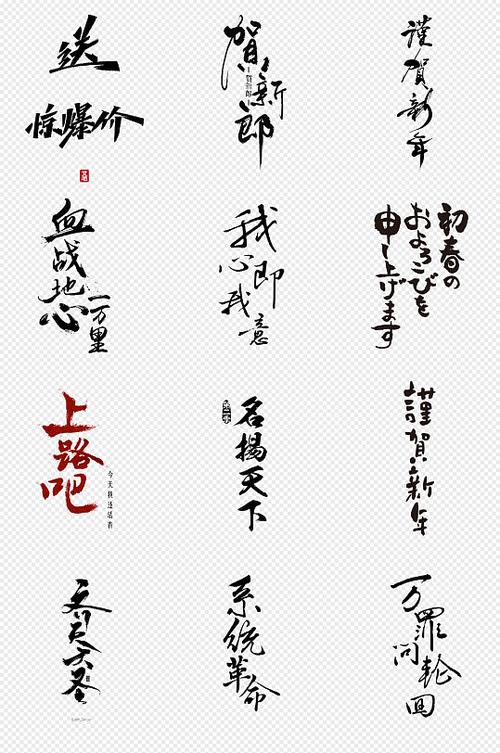 送
惊爆价
贺新郎
謹賀新年
血战地心
一万里
我心即我意
初春の
およろこびを
申し上げます
上路吧
今天我送活着
名揚天下
謹賀新年
齐天大圣
系统革命
万罪问轮回